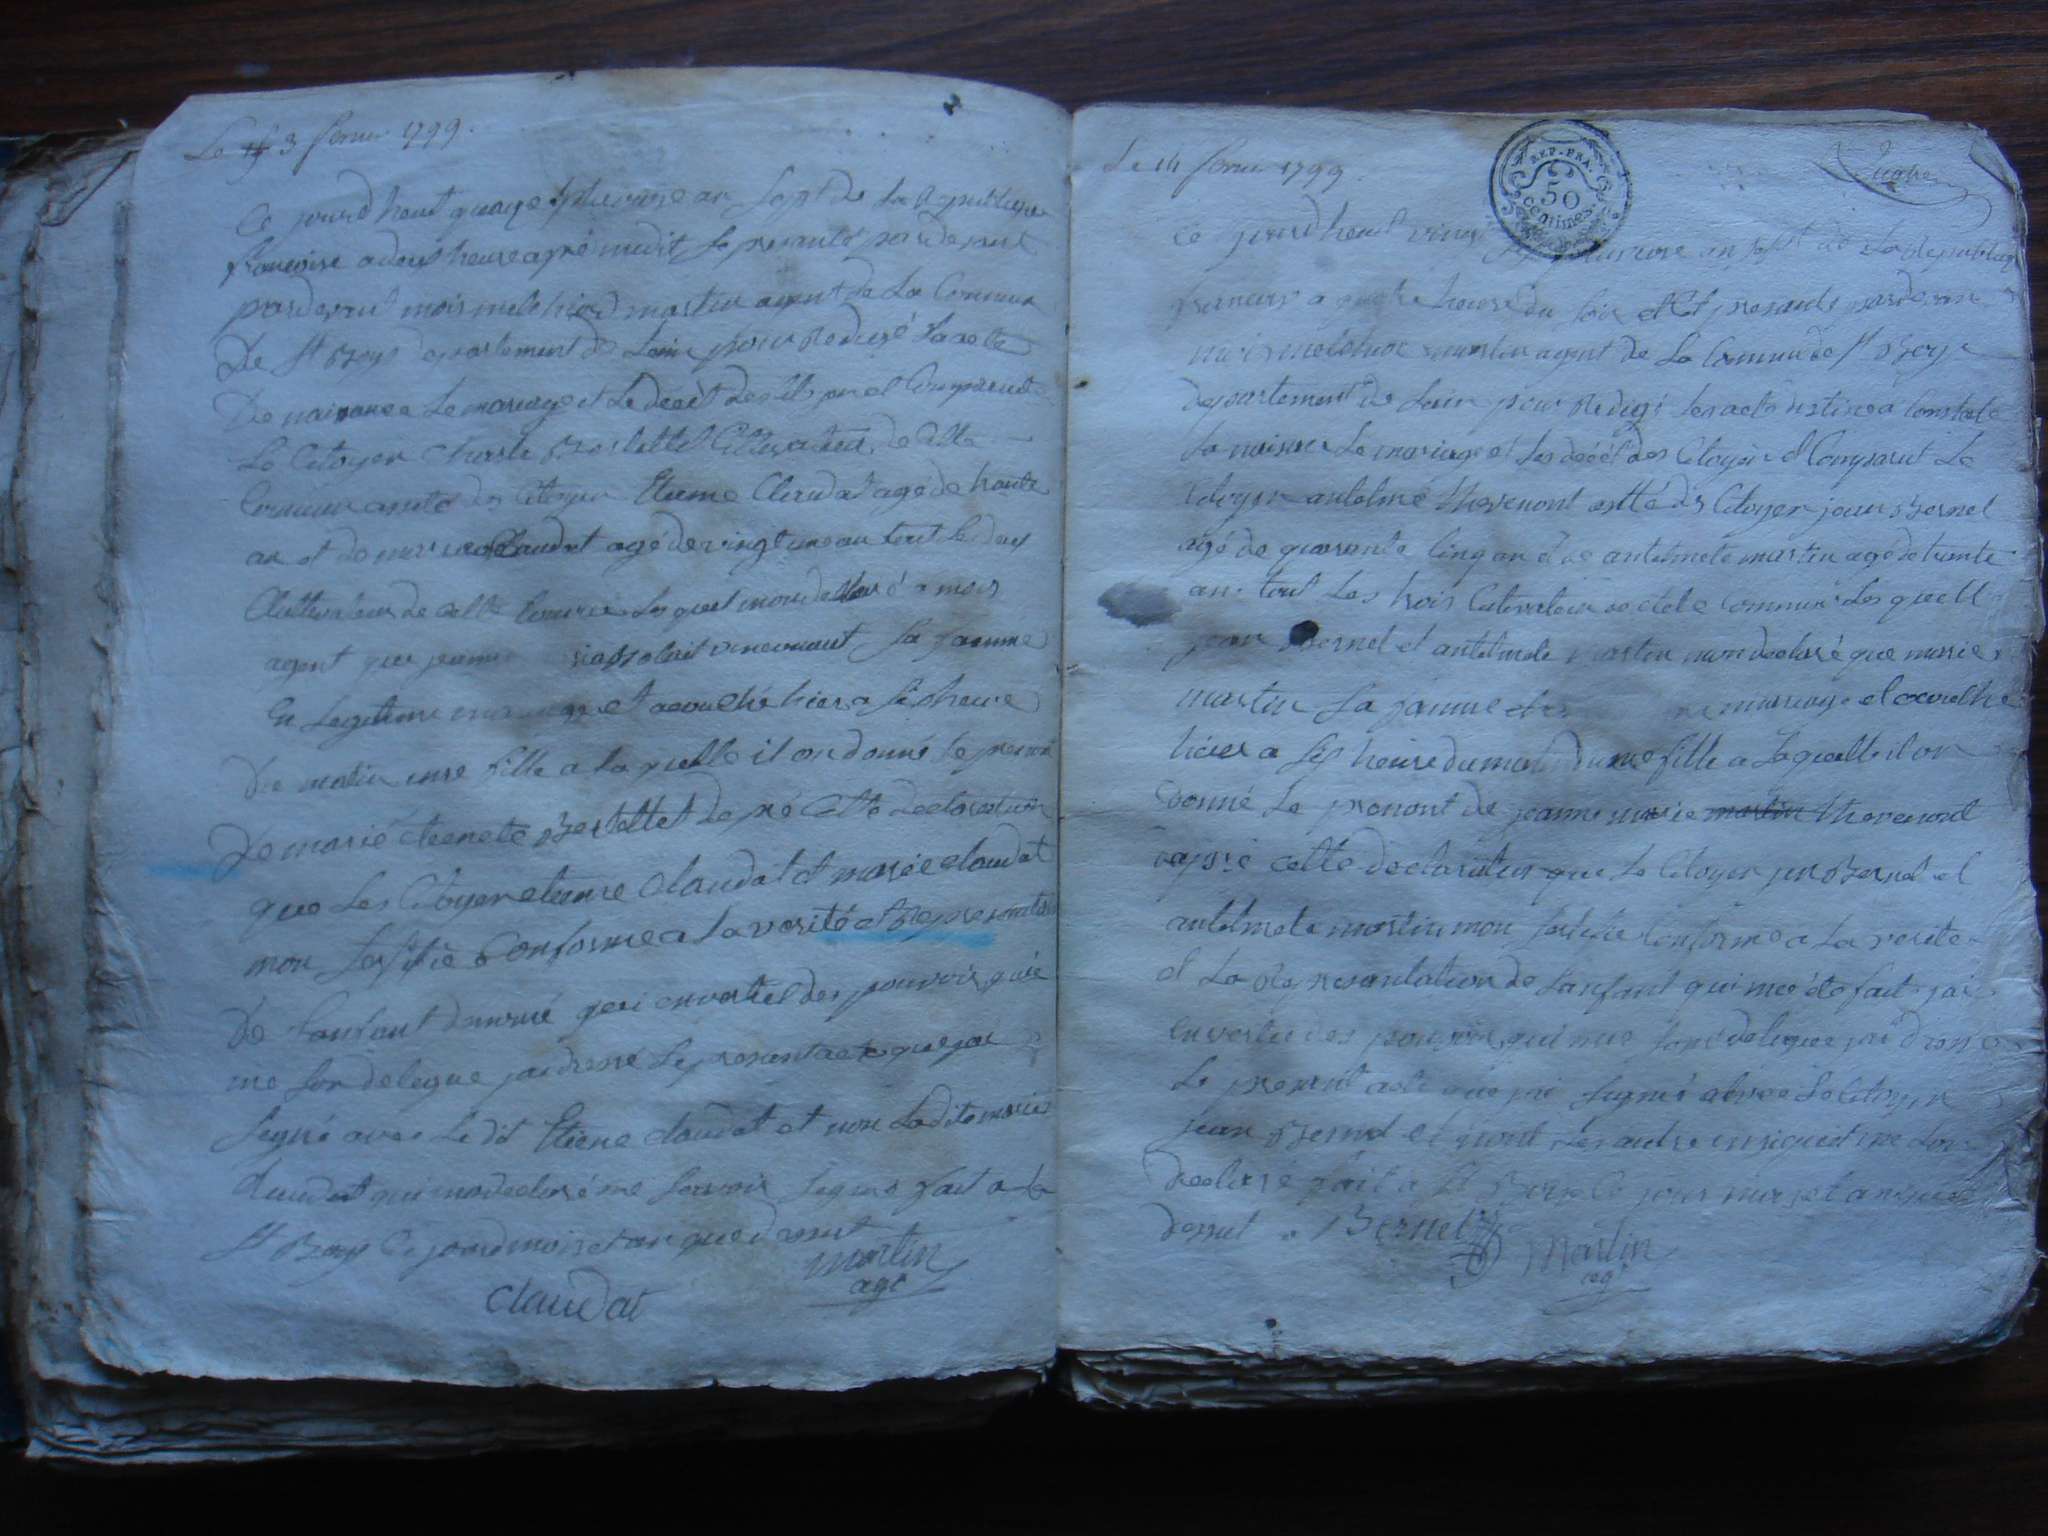 Le 3 fevrier 1799.
Ce jourd heuit quinze pluviose an sept de La Republique
francoise a deus heure apré midit
pardevant mois melchiord martin agent de La Commun
De St Boys departement de Lain pour Redigé Lacte
De naisance Le mariage et Le décét
Le Citoyen Charle Bertettet Cultivateur de cette
Commun Citoyen Etienne Claudat agé de trante
an et de marie Claudat agé de vingt un an tout les deus
Cultivateur de cette Commun Les quel mon declaré a mois
agent que jeanne sa famme
En Legitime mariage et acouché hier a sis heure
De matin une fille a la quelle il on donné le prenon
De marie etienete Bertettet da pré Cette declaration
que Les Citoyen etienne Claudat et marie claudat
mon sertifié Conforme a La verité et Represantation
De Lanfant denomé jeai en vertu des pouvoir qui
me son delegue jai dressé Le presant acte que jai
Signé avec Le dit Etiene claudat et non Ladite marie
Claudat qui ma declaré ne savoir signé fait a
St Boys Ce jour mois et an que desut
martin
agt
Claudat
Le 14 fevrier 1799.
REP. FRA.
50
centimes.
Ce jourd heuit vint sis pluviose an sept de La Republiq
heure du soir
mois melchior martin agent de La Commun de St Boys
departement de Lain pour Redigé les acte destiné a Constaté
La naisance Le mariage et Les décét des Citoyen Comparut Le
Citoyen antelme thevenont asité des Citoyen jean Bernet
agé de quarante Cinq an et de antelmete martin agé de trante
an tout Les trois Cultivateur de cete Commun Les quell
jean Bernet et antelmete martin mon declaré que marie
martin sa famme mariage et acouché
hier a sis heure du matin dune fille a Laquelle il on
Donné Le prenont de jeanne marie martin thevenont
dapré cette declaration que Le Citoyen jean Bernet et
antelmete martin mon sertifié Conforme a La verité
et La Represantation de Lanfant qui ma été fait jai
En vertu des pouvoir qui me sont delegué jai dressé
Le presant acte que jai signé avec Le Citoyen
jean Bernet et nont Les autre
declaré fait a St Boys Ce jour mois et an que
desut Bernet
Martin
agt